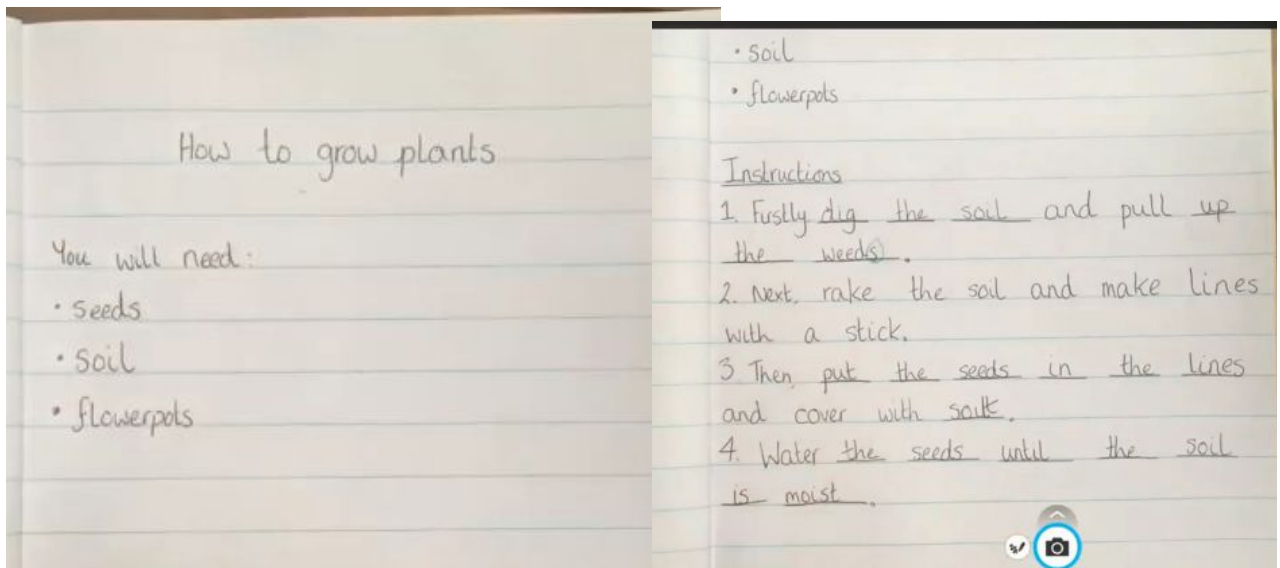 How to grow plants
You will need:
• seeds
• soil
• flowerpots
• soil
• flowerpots
Instructions
1. Fustly dig the soil and pull up
the weeds.
2. Next, rake the soil and make lines
with a stick.
3 Then, put the seeds in the lines
and cover with
4. Water the seeds until the soil
is moist.